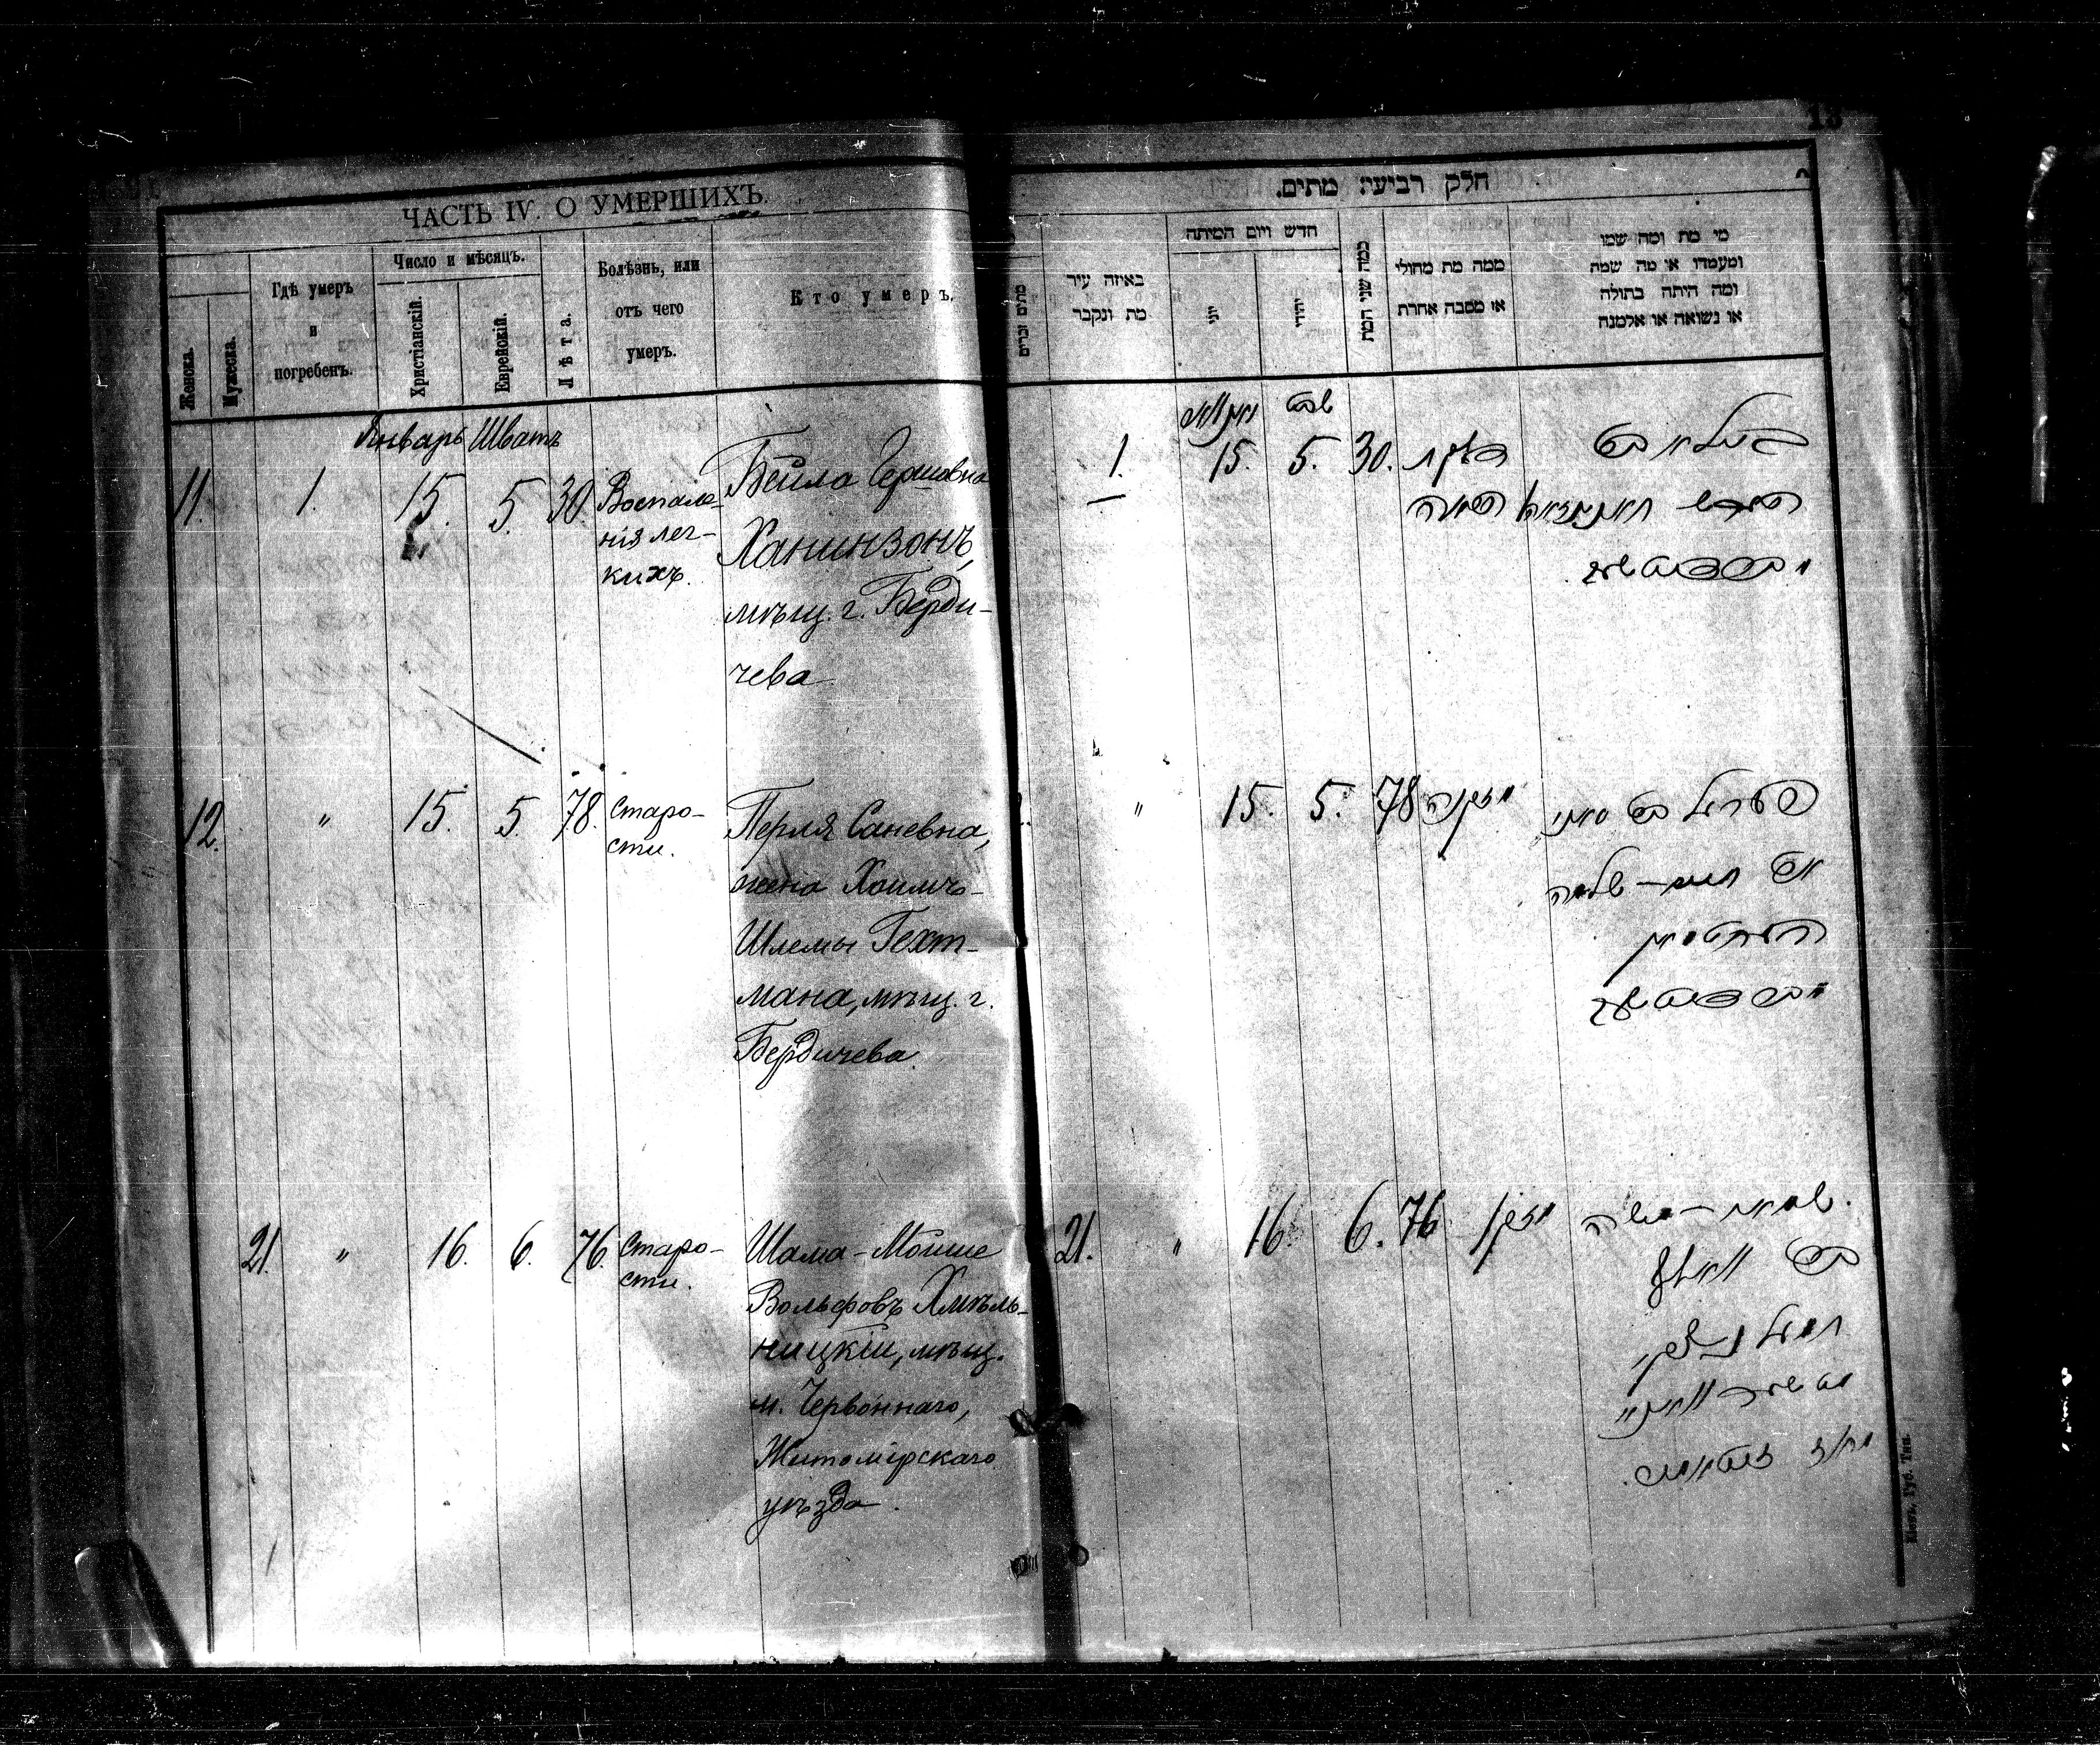 13
ЧАСТЬ IV. О УМЕРШИХЪ.
Женска.
Мужеска.
Гдѣ умеръ
и
погребенъ.
Число и мѣсяцъ.
Христіанскій.
Еврейскій.
Лѣта.
Болѣзнь, или
отъ чего
умеръ.
Кто умеръ.
Январь Шватъ
11. 1. 15. 5. 30. Воспале-
нія лег-
кихъ.
Бейла Гершовна
Ханинзонъ,
мѣщ. г. Берди-
чева
12. " 15. 5. 78. Старо-
сти.
Перля Саневна,
жена Хаимъ-
Шлемы Гехт-
мана, мѣщ. г.
Бердичева
21. " 16. 6. 76. Старо-
сти.
Шама-Мойше
Вольфовъ Хмѣль-
ницкій, мѣщ.
м. Червоннаго,
Житомірскаго
уѣзда.
חלק רביעי מתים.
מתים זכרים
באיזה עיר
מת ונקבר
חדש ויום המיתה
יוני
יהודי
כמה שני המת
ממה מת מחולי
או מסבה אחרת
מי מת ומה שמו
ומעמדו או מה שמה
ומה היתה בתולה
או נשואה או אלמנה
שבט
1. 15. 5. 30.
ביילא בת
" 15. 5. 78 מזקנה
פערל בת סאני
אשת חיים-שלמה
העכטמאן
מבארדיטשוב
21. " 16. 6. 76 מזקן
שמאי-משה
בן וואלף
חמעלניצקי
Кіевъ, Губ. Тип.